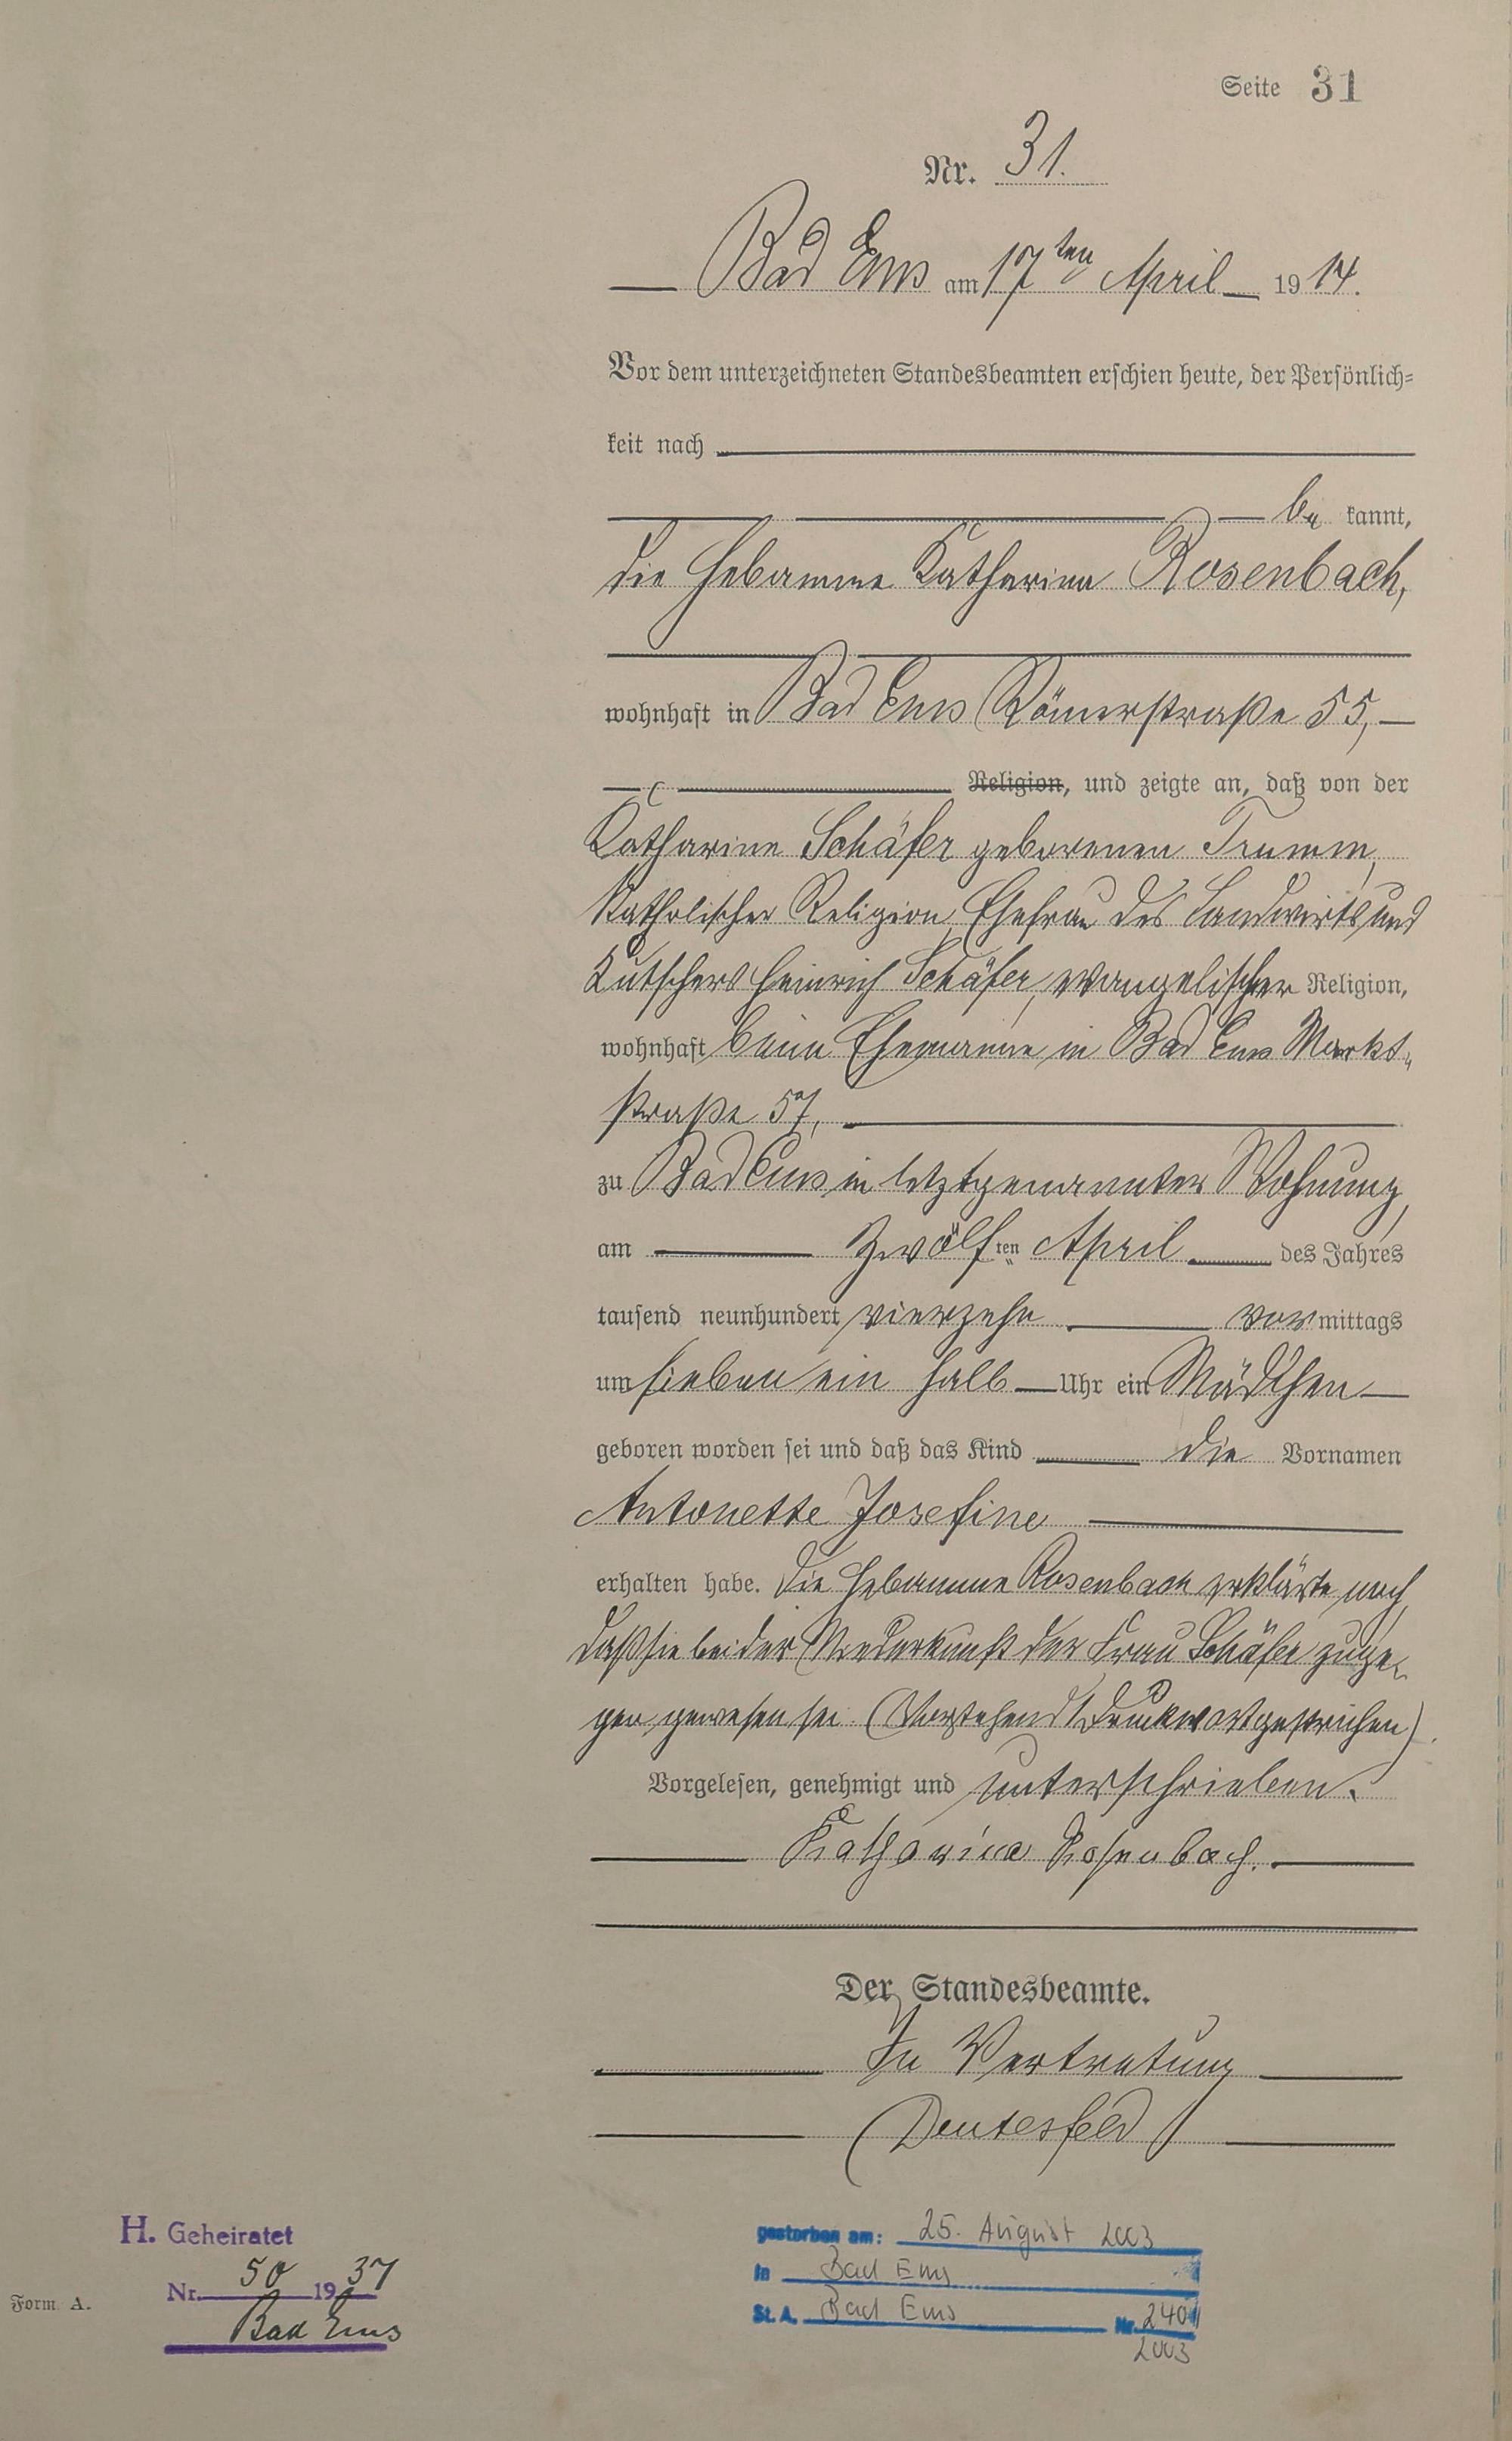 Seite 31
Nr. 31.
Bad Ems am 17ten April 1914.
Vor dem unterzeichneten Standesbeamten erschien heute, der Persönlich-
keit nach
be kannt,
die Hebamme Katharina Rosenbach,
wohnhaft in Bad Ems Römerstraße 55,
Religion, und zeigte an, daß von der
Katharina Schäfer geborenen Trumm,
katholischer Religion, Ehefrau des Landwirts und
Kutschers Heinrich Schäfer, evangelischer Religion,
wohnhaft beim Ehemanne in Bad Ems Markt-
straße 57,
zu Bad Ems in letztgenannter Wohnung,
am zwölften April des Jahres
tausend neunhundert vierzehn vormittags
um sieben ein halb Uhr ein Mädchen
geboren worden sei und daß das Kind die Vornamen
Antonette Josefine
erhalten habe. Die Hebamme Rosenbach erklärte noch,
daß sie bei der Niederkunft der Frau Schäfer zuge-
gen gewesen sei. (Vorstehend 1 Druckwort gestrichen).
Vorgelesen, genehmigt und unterschrieben.
Katharina Rosenbach.
Der Standesbeamte.
In Vertretung
Deutesfeld
H. Geheiratet
Nr. 50 1937
Bad Ems
Form. A.
gestorben am: 25. August 2003
in Bad Ems
St. A. Bad Ems Nr. 240
2003